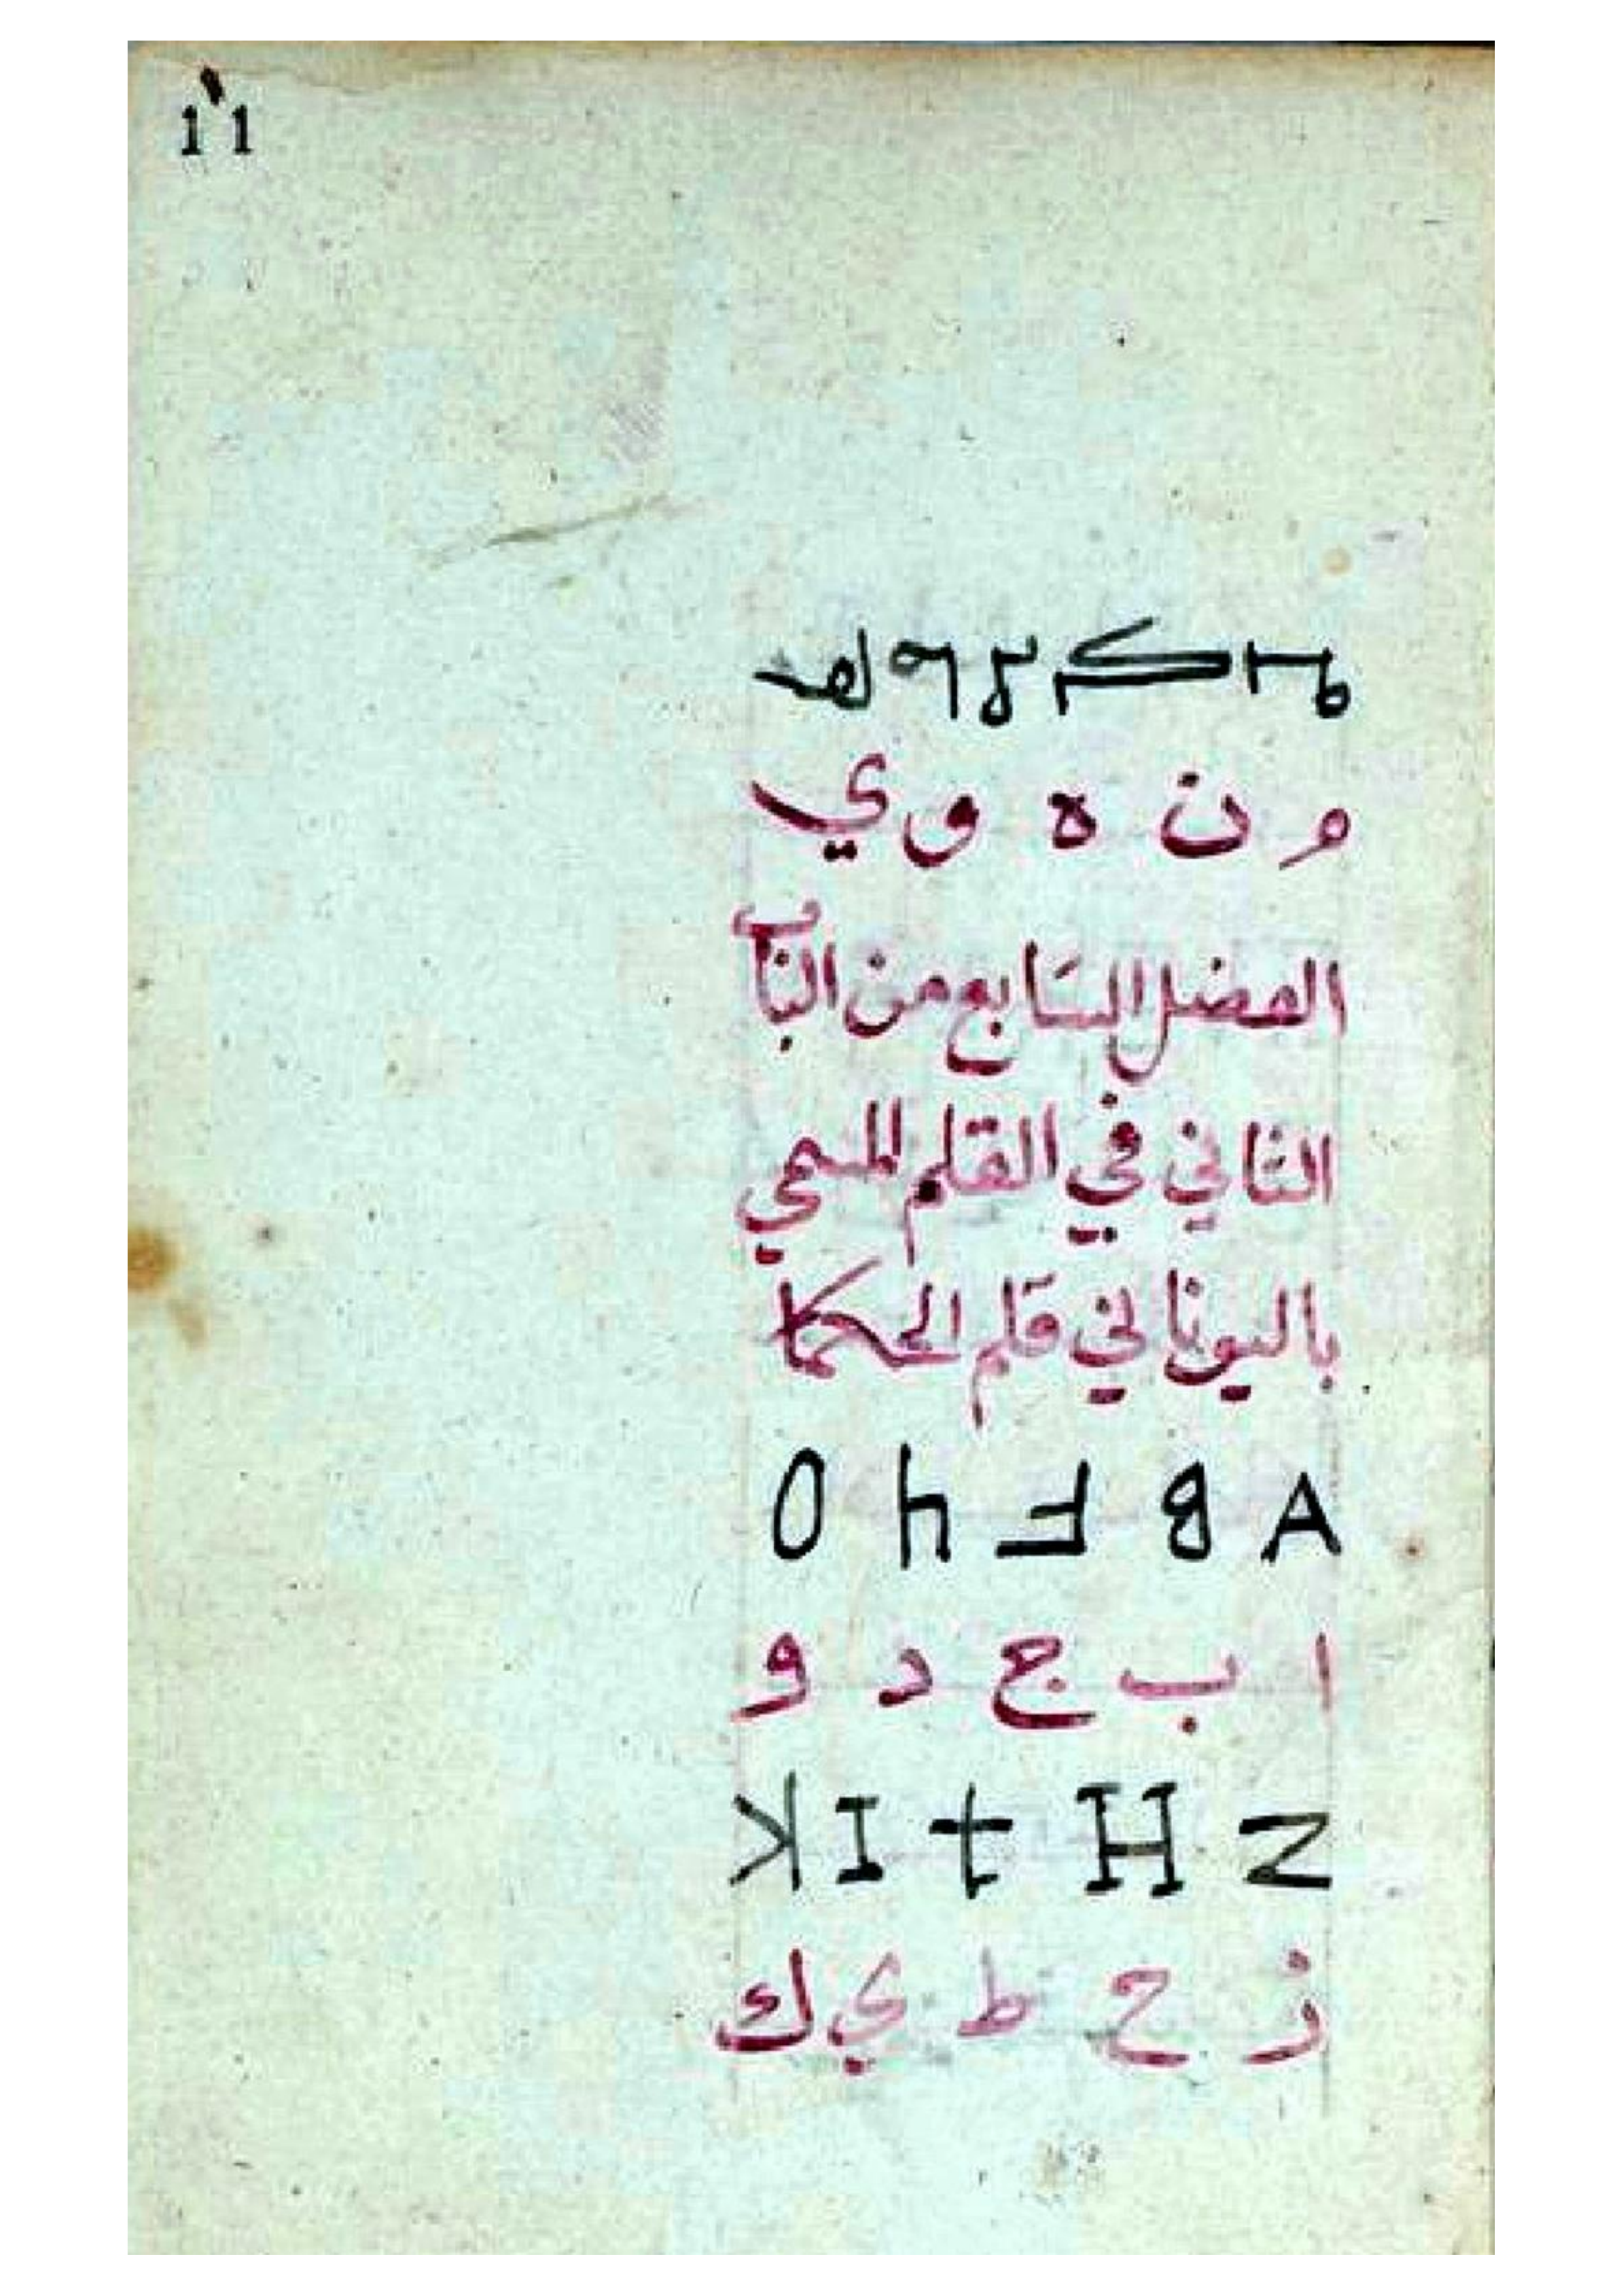 11
م ن ه و ي
الفضل السَابع من الباب
الثاني في القلم المسمي
باليوناني قلم الحكما
A B F h O
ا ب ج د و
Z H t I K
ز ح ط ي ك